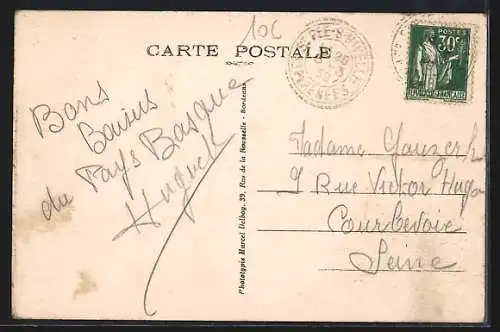 10c
CARTE POSTALE
POSTES
30c
Bons
Baisers
du Pays Basque
Huguette
Phototypie Marcel Delboy, 39, Rue de la Rousselle - Bordeaux
Madame
9 Rue Victor Hugo
Courbevoie
Seine